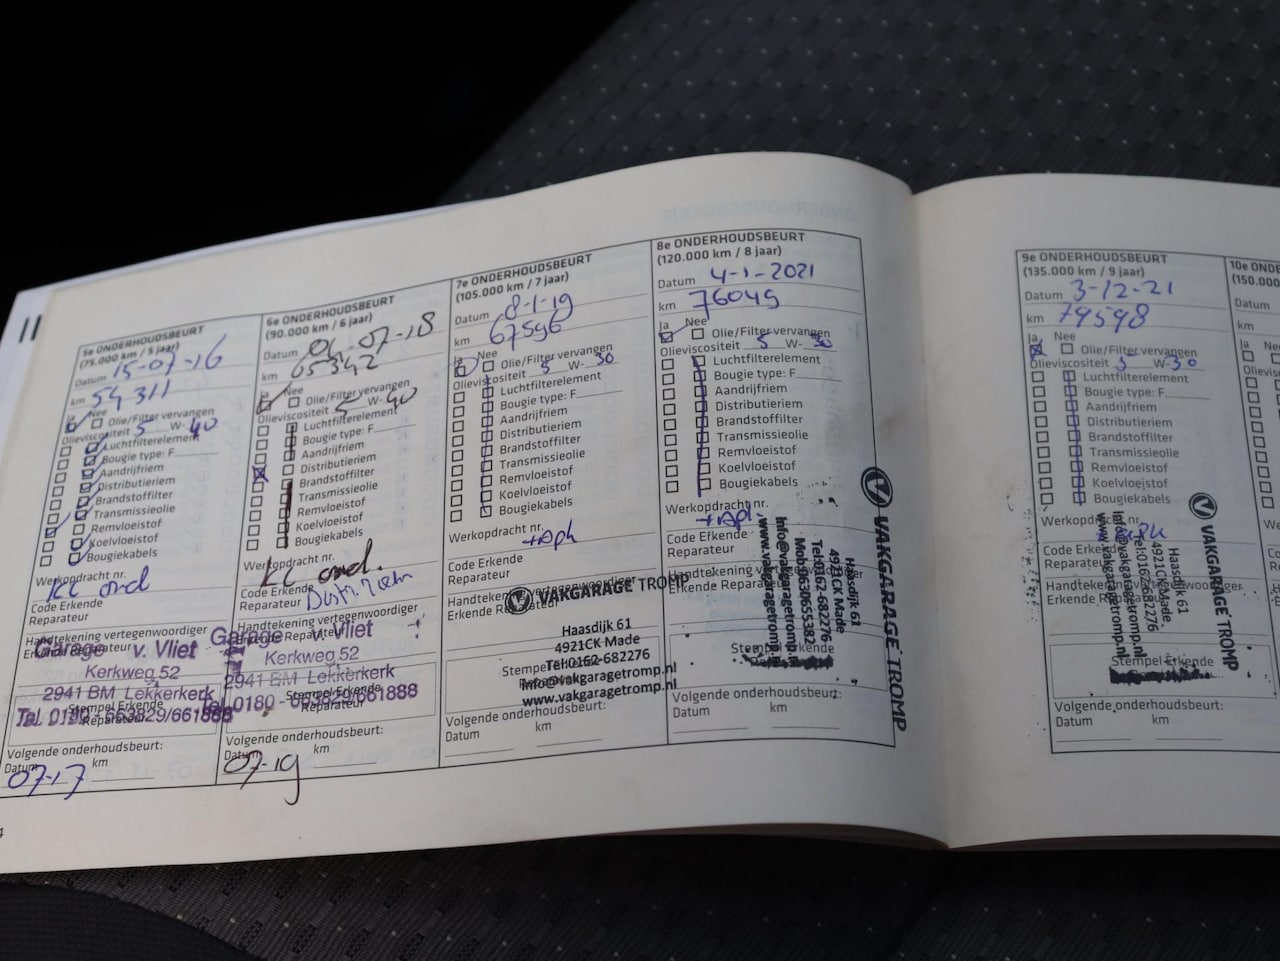 5e ONDERHOUDSBEURT
(75.000 km / 5 jaar)
Datum 15-07-16
km 54311
Ja Nee
Olie/Filter vervangen
Olieviscositeit 5 W-40
Luchtfilterelement
Bougie type: F
Aandrijfriem
Distributieriem
Brandstoffilter
Transmissieolie
Remvloeistof
Koelvloeistof
Bougiekabels
Werkopdracht nr.
Code Erkende
Reparateur
Handtekening vertegenwoordiger
Erkende Reparateur
Garage v. Vliet
Kerkweg 52
2941 BM Lekkerkerk
Stempel Erkende
Reparateur
Volgende onderhoudsbeurt:
Datum km
07-17
6e ONDERHOUDSBEURT
(90.000 km / 6 jaar)
Datum 07-18
km 65342
Ja Nee
Olie/Filter vervangen
Olieviscositeit 5 W-40
Luchtfilterelement
Bougie type: F
Aandrijfriem
Distributieriem
Brandstoffilter
Transmissieolie
Remvloeistof
Koelvloeistof
Bougiekabels
Werkopdracht nr.
Code Erkende
Reparateur
Handtekening vertegenwoordiger
Erkende Reparateur
Garage v. Vliet
Kerkweg 52
2941 BM Lekkerkerk
Stempel Erkende
Tel. 0180 - 663829/661888
Reparateur
Volgende onderhoudsbeurt:
Datum km
07-19
7e ONDERHOUDSBEURT
(105.000 km / 7 jaar)
Datum 8-1-19
km 67596
Ja Nee
Olie/Filter vervangen
Olieviscositeit 5 W-30
Luchtfilterelement
Bougie type: F
Aandrijfriem
Distributieriem
Brandstoffilter
Transmissieolie
Remvloeistof
Koelvloeistof
Bougiekabels
Werkopdracht nr.
+aph
Code Erkende
Reparateur
Handtekening vertegenwoordiger
Erkende Reparateur
VAKGARAGE TROMP
Haasdijk 61
4921CK Made
Tel:0162-682276
Stempel Erkende
Reparateur
Info@vakgaragetromp.nl
www.vakgaragetromp.nl
Volgende onderhoudsbeurt:
Datum km
8e ONDERHOUDSBEURT
(120.000 km / 8 jaar)
Datum 4-1-2021
km 76049
Ja Nee
Olie/Filter vervangen
Olieviscositeit 5 W-30
Luchtfilterelement
Bougie type: F
Aandrijfriem
Distributieriem
Brandstoffilter
Transmissieolie
Remvloeistof
Koelvloeistof
Bougiekabels
Werkopdracht nr.
+aph
Code Erkende
Reparateur
Handtekening vertegenwoordiger
Erkende Reparateur
VAKGARAGE TROMP
Haasdijk 61
4921CK Made
Tel:0162-682276
Mob:0630655382
Info@vakgaragetromp.nl
www.vakgaragetromp.nl
Stempel Erkende
Volgende onderhoudsbeurt:
Datum km
9e ONDERHOUDSBEURT
(135.000 km / 9 jaar)
Datum 3-12-21
km 79598
Ja Nee
Olie/Filter vervangen
Olieviscositeit 5 W-30
Luchtfilterelement
Bougie type: F
Aandrijfriem
Distributieriem
Brandstoffilter
Transmissieolie
Remvloeistof
Koelvloeistof
Bougiekabels
Werkopdracht nr.
Code Erkende
Reparateur
Handtekening vertegenwoordiger
Erkende Reparateur
VAKGARAGE TROMP
Haasdijk 61
4921CK Made
Tel:0162-682276
Info@vakgaragetromp.nl
www.vakgaragetromp.nl
Stempel Erkende
Volgende onderhoudsbeurt:
Datum km
10e ONDE
(150.000
Datum
km
Ja